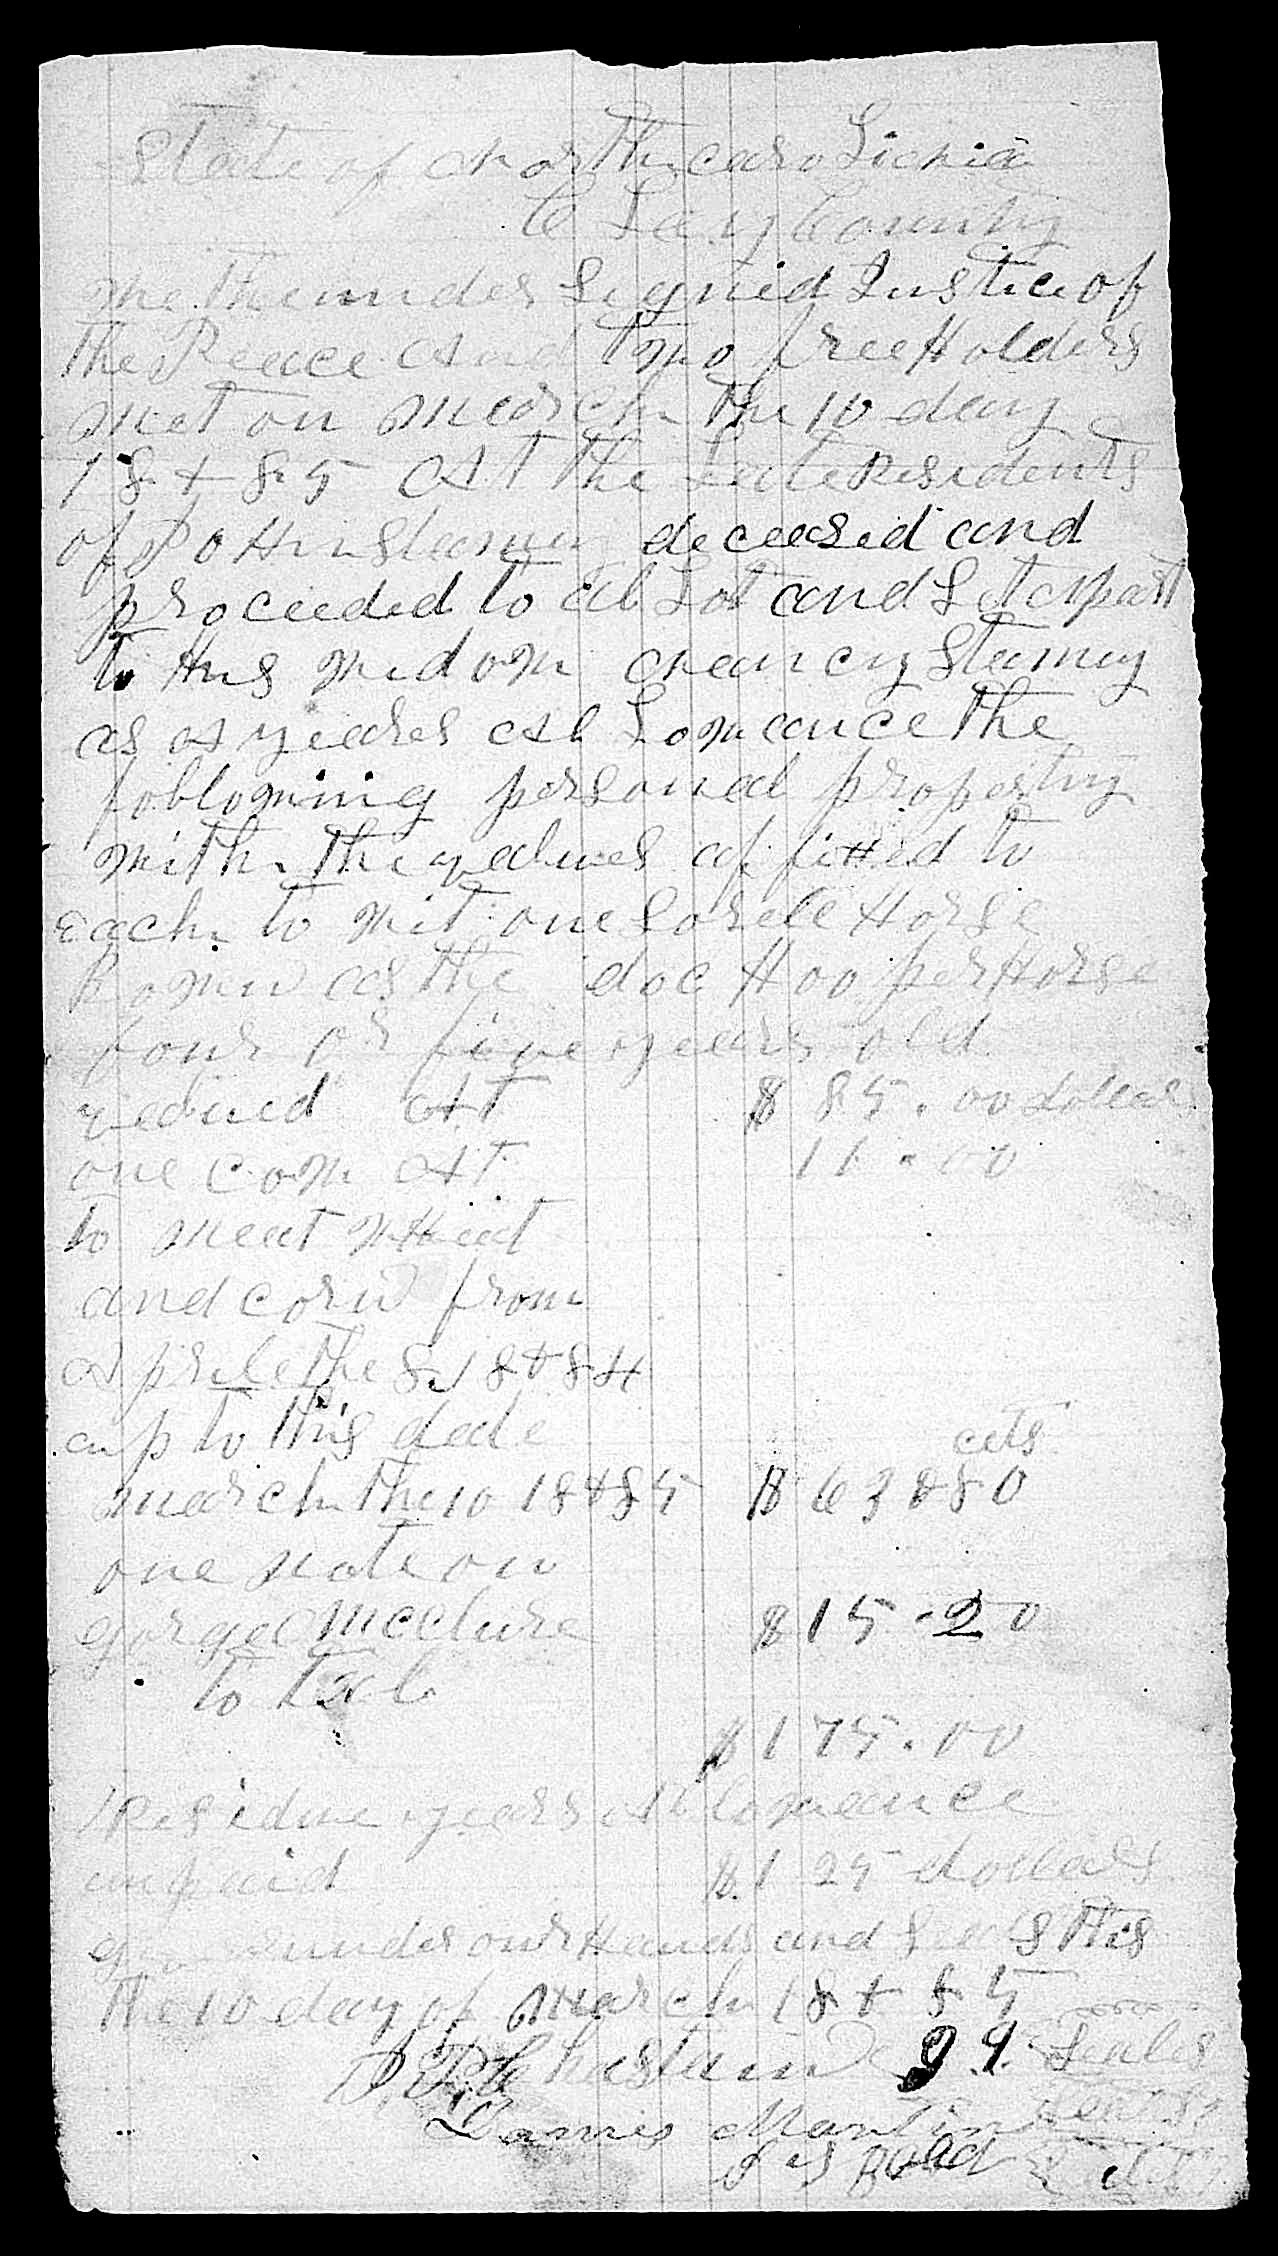 State of North carolinia
Clay County
We the under Signed Justice of
the Peace And Two free Holders
met on March the 10 day
18+85 At the Late Residents
of deceased and
proceeded to allot and Set apart
to His Widow Nancy Stamey
as A years Allowance the
following personal property
with the values affixed to
each to wit one Sorele Horse
known as the doc Hooper Horse
four or five years old
valued At $ 85.00 dollars
one cow At 11.00
to meat Wheat
and corn from
Aprile the 8 18+84
up to this date cets
march the 10 18+85 $ 63+80
one note on
gorge Mcclure $ 15.20
total
$ 175.00
Residue years Allowance
unpaid $ 125 dollars
under our Hands and Seals this
the 10 day of March 18+85
Chastain J.P. Seales
James Martin